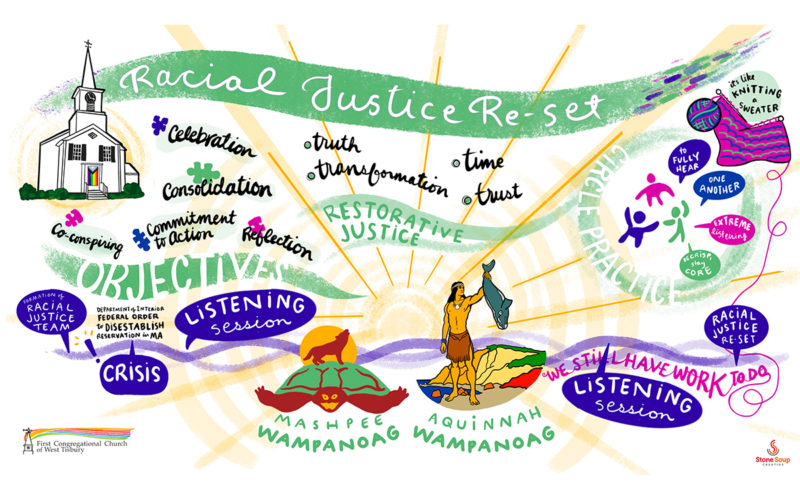 Racial Justice Re-set
it's like
KNITTING
a
SWEATER
Celebration
Consolidation
Co-conspiring
Commitment
to Action
Reflection
OBJECTIVES
truth
transformation
time
trust
RESTORATIVE
JUSTICE
CIRCLE PRACTICE
to
FULLY
HEAR
ONE
ANOTHER
EXTREME
listening
BE CRISP,
stay
CORE
FORMATION of
RACIAL
JUSTICE
TEAM
DEPARTMENT of INTERIOR
FEDERAL ORDER
to DISESTABLISH
RESERVATION in MA
CRISIS
LISTENING
session
MASHPEE
WAMPANOAG
AQUINNAH
WAMPANOAG
WE STILL HAVE WORK TO DO
LISTENING
session
RACIAL
JUSTICE
RE-SET
First Congregational Church
of West Tisbury
Stone Soup
CREATIVE